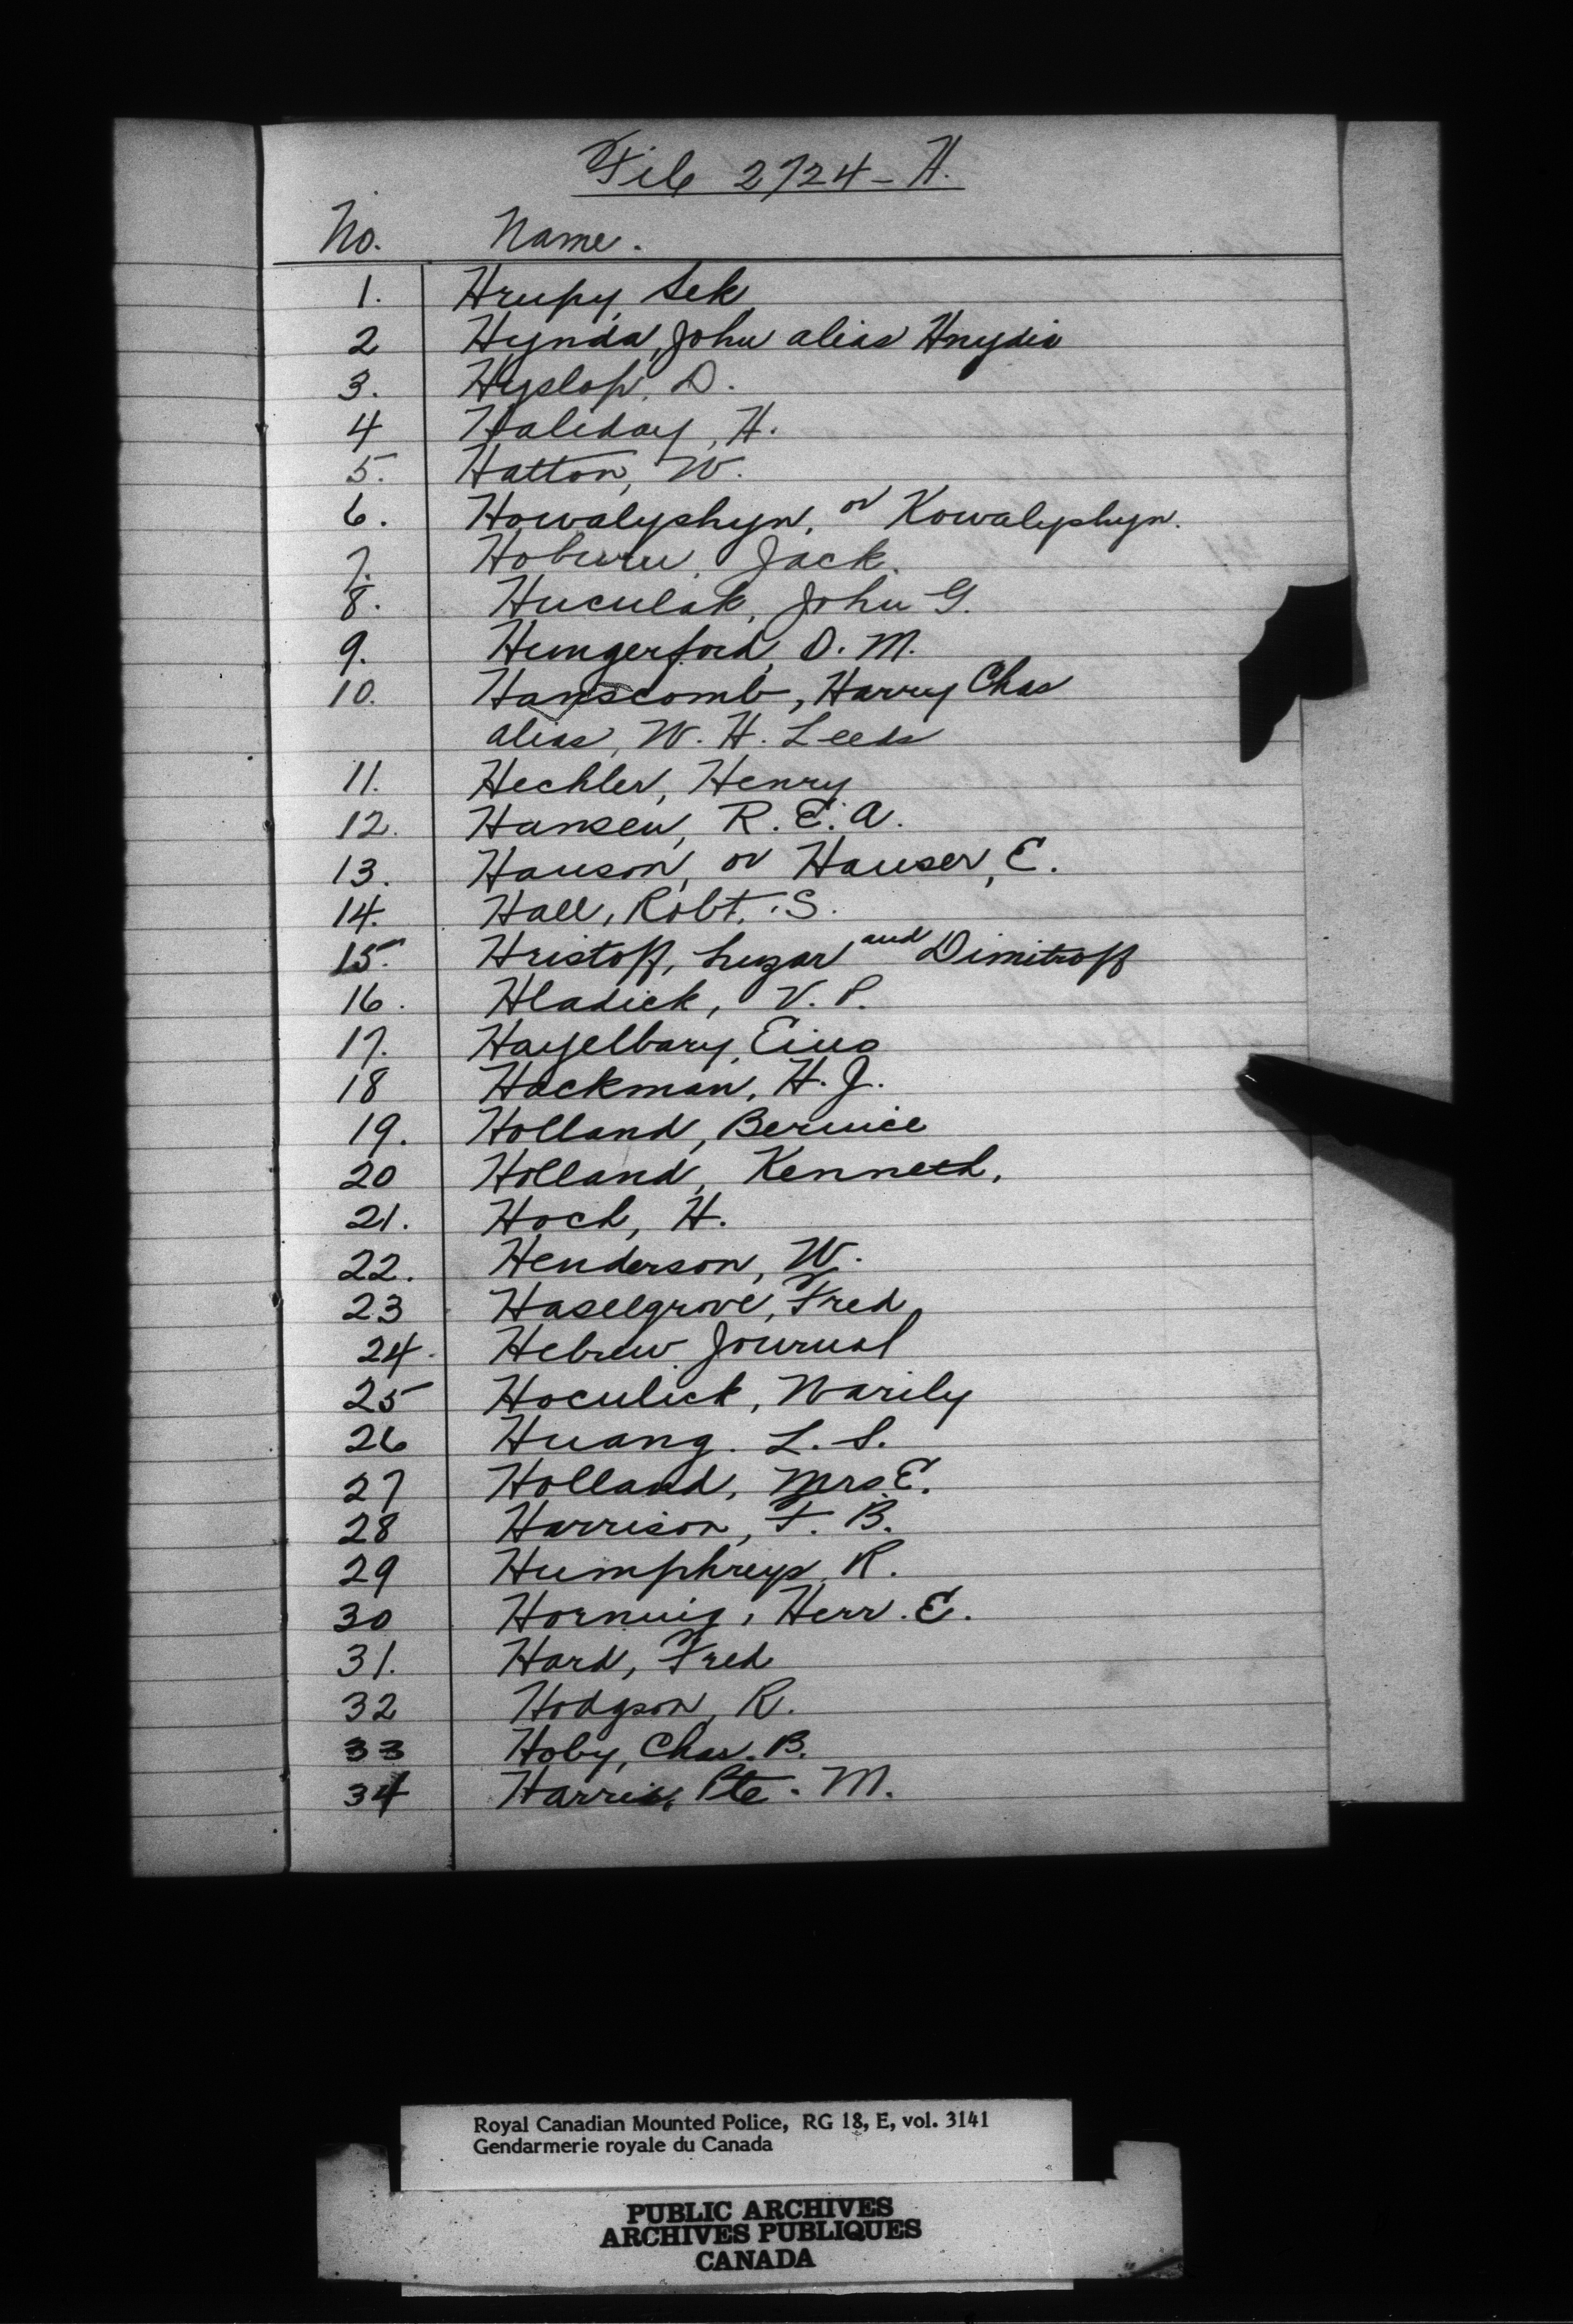 File 2724 - H.
No. Name.
1. Hrupy, Sek
2 Hynda, John alias Hnydia
3. Hyslop, D.
4 Haliday, H.
5. Hatton, W.
6. Howalyshyn, or Kowalyshyn.
7. Hoburu, Jack.
8. Huculak, John G.
9. Hungerford, O. M.
10. Hanscomb, Harry Chas
alias, W. H. Leeds
11. Hechler, Henry
12. Hansen, R. E. A.
13. Hauson, or Hauser, E.
14. Hall, Robt. S.
15. Hristoff, Luzar and Dimitroff
16. Hladick, V. P.
17. Hayelbary, Eino
18 Hackman, H. J.
19. Holland, Bernice
20 Holland, Kenneth.
21. Hoch, H.
22. Henderson, W.
23 Haselgrove, Fred
24. Hebrew Journal
25 Hoculick, Warily
26 Huang. L. S.
27 Holland, Mrs E.
28 Harrison, F. B.
29 Humphreys, R.
30 Hornuig, Herr. E.
31. Hard, Fred
32 Hodgson, R.
33 Hoby, Chas. B.
34 Harris, Pte. M.
Royal Canadian Mounted Police, RG 18, E, vol. 3141
Gendarmerie royale du Canada
PUBLIC ARCHIVES
ARCHIVES PUBLIQUES
CANADA